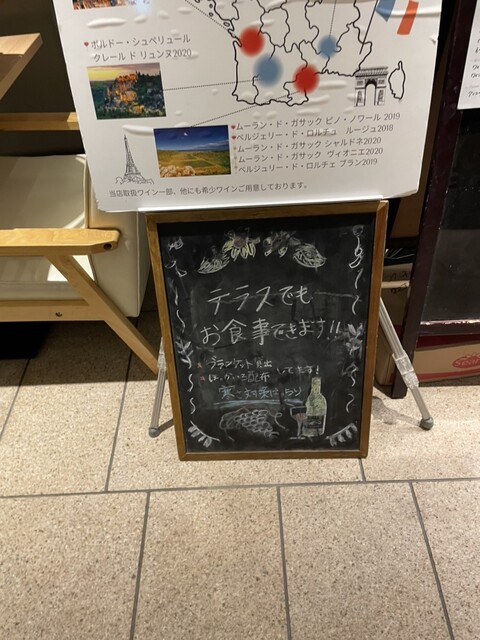 ボルドー・シュペリュール
クレール ド リュンヌ2020
ムーラン・ド・ガサック ピノ・ノワール 2019
ベルジェリー・ド・ロルチュ ルージュ2018
ムーラン・ド・ガサック シャルドネ2020
ムーラン・ド・ガサック ヴィオニエ2020
ベルジェリー・ド・ロルチェ ブラン2019
当店取扱ワイン一部、他にも希少ワインご用意しております。
テラスでも
お食事できます!!
ブランケット貸出
してます!
配布